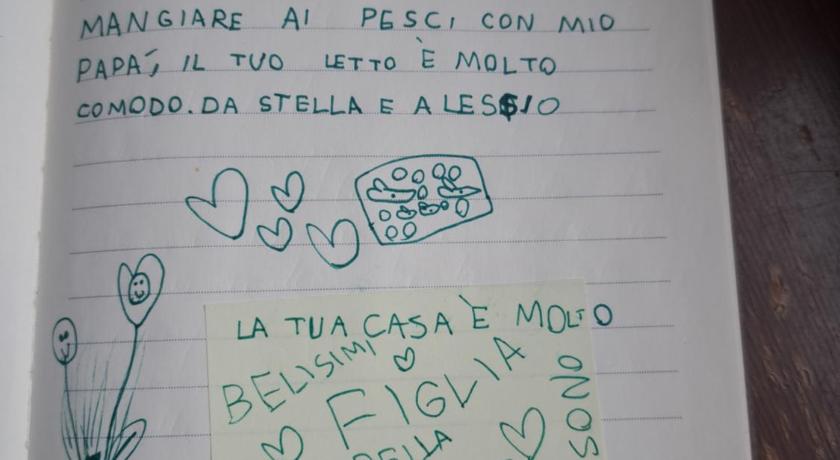 MANGIARE AI PESCI CON MIO
PAPA', IL TUO LETTO È MOLTO
COMODO. DA STELLA E ALESSIO
LA TUA CASA È MOLTO
BELISIMI
FIGLIA
BELLA
SONO